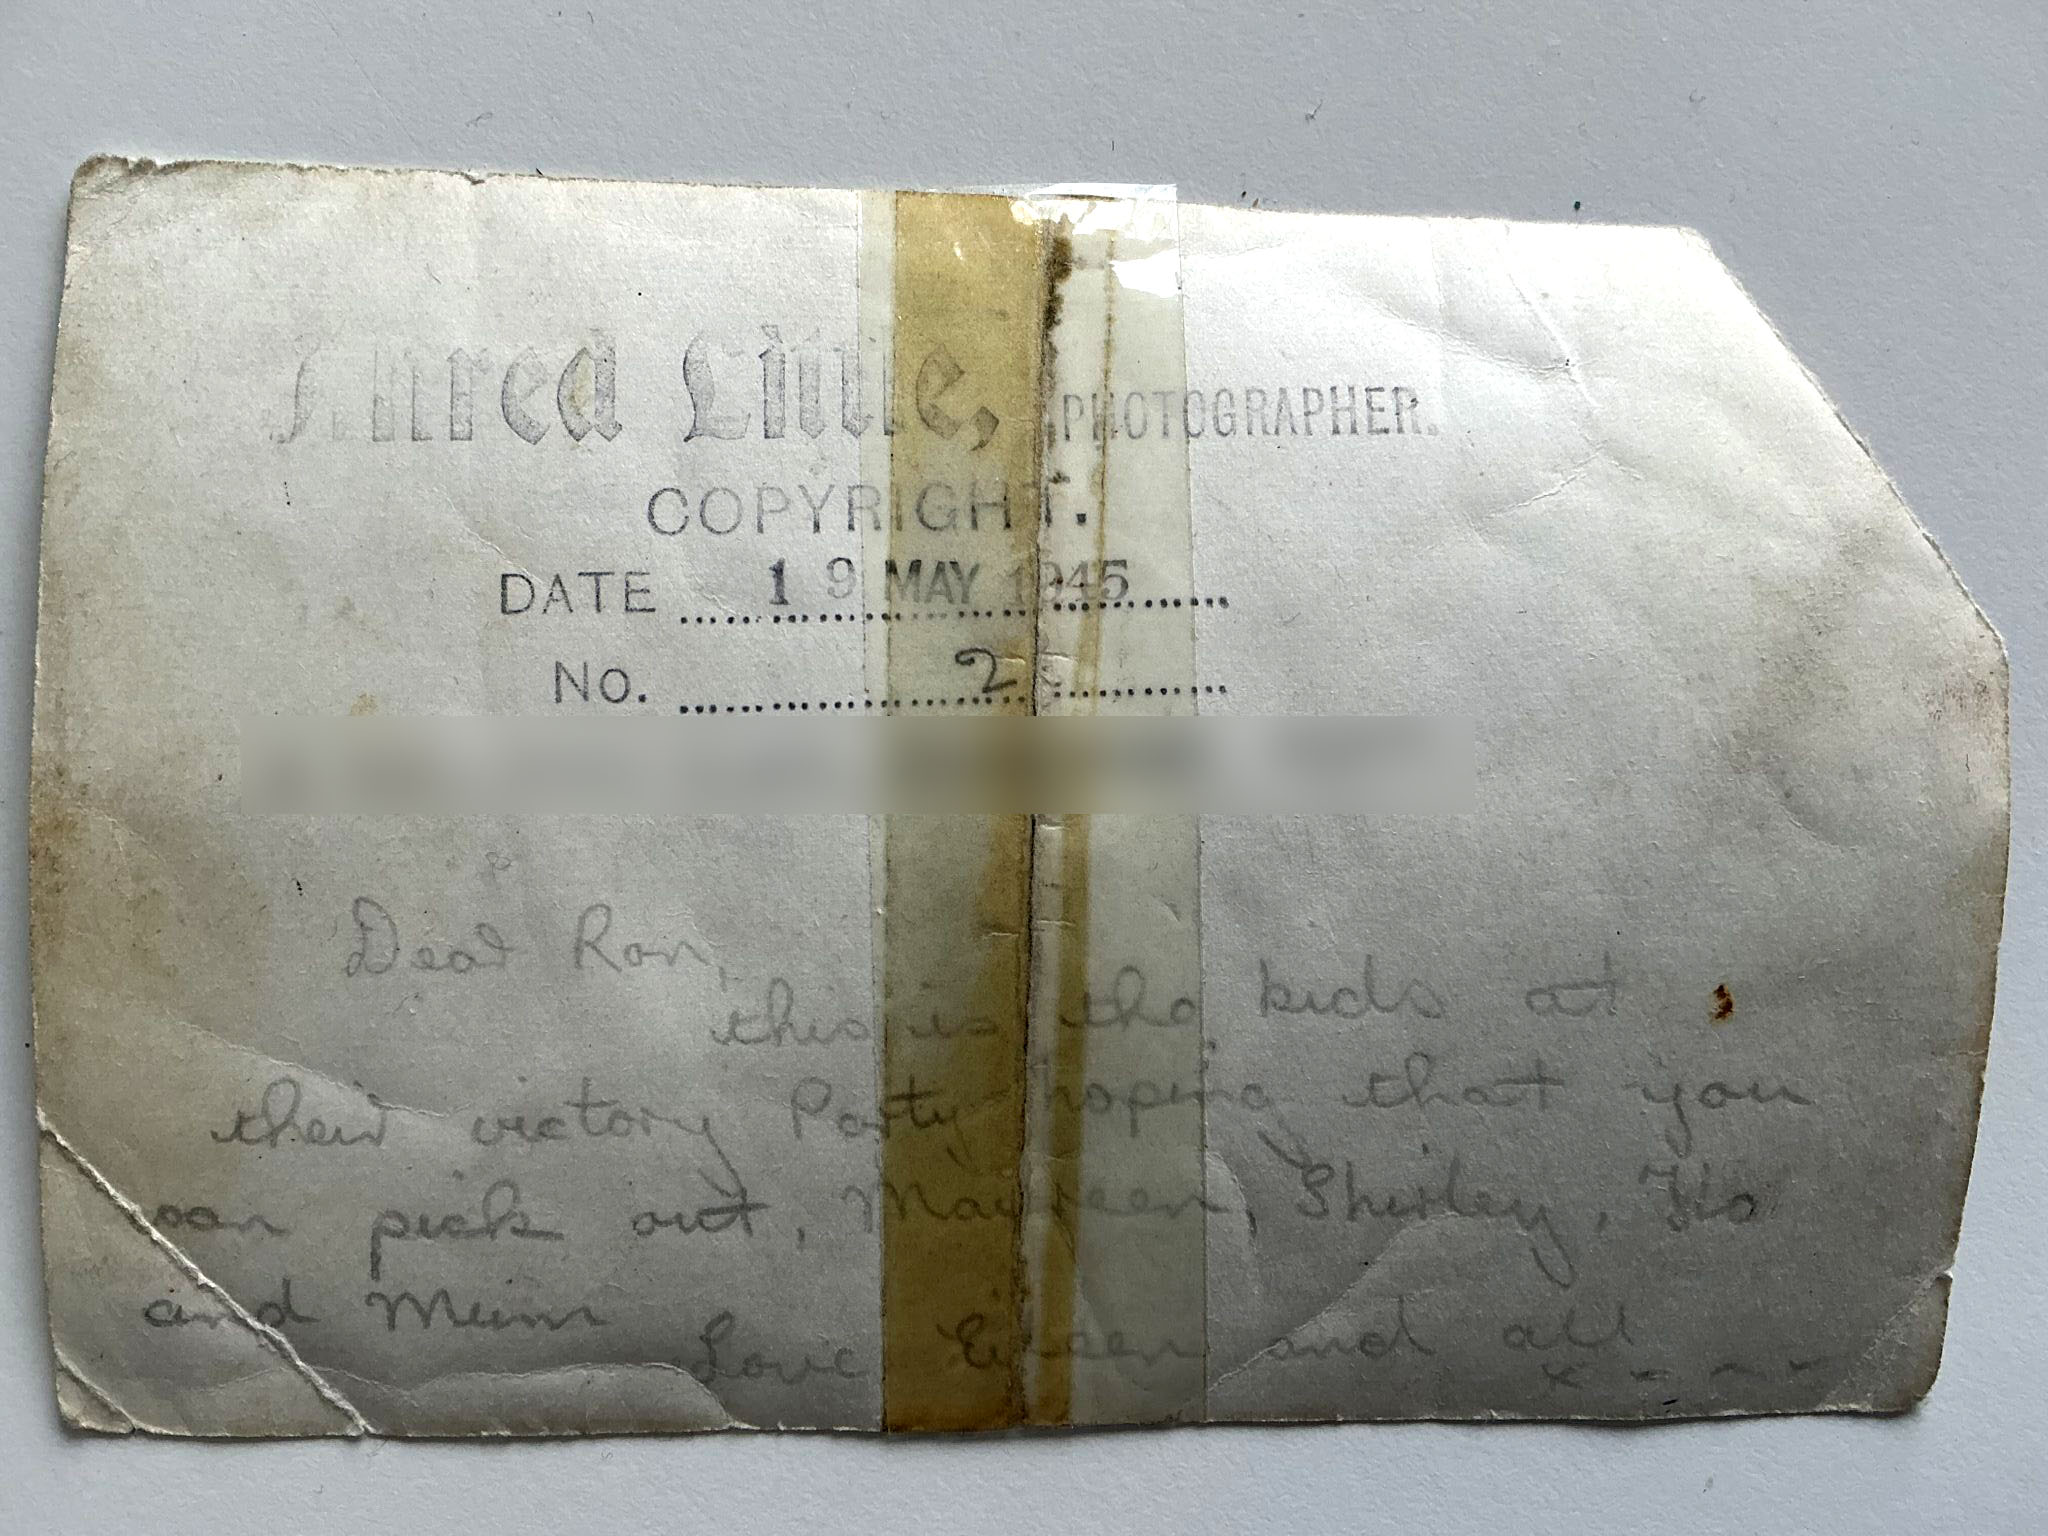 Alfred Little, PHOTOGRAPHER.
COPYRIGHT.
DATE 19 MAY 1945
NO. 2
Dear Ron,
this is the kids at
their victory Party hoping that you
can pick out, Maureen, Shirley, Flo
and Mum
Love Eileen and all
x - - -